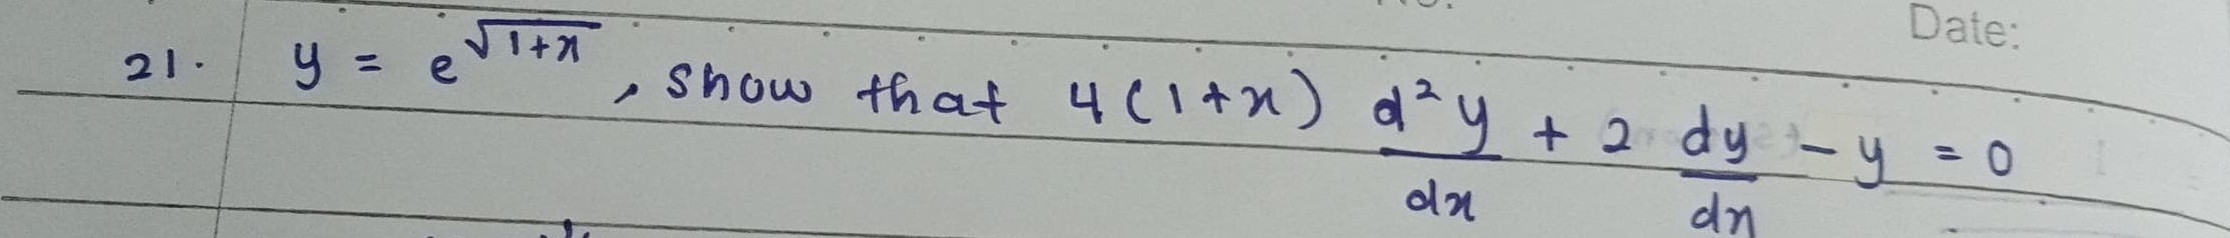 Date:
21. y = e^√(1+x), show that 4(1+x) d²y/dx + 2 dy/dx - y = 0